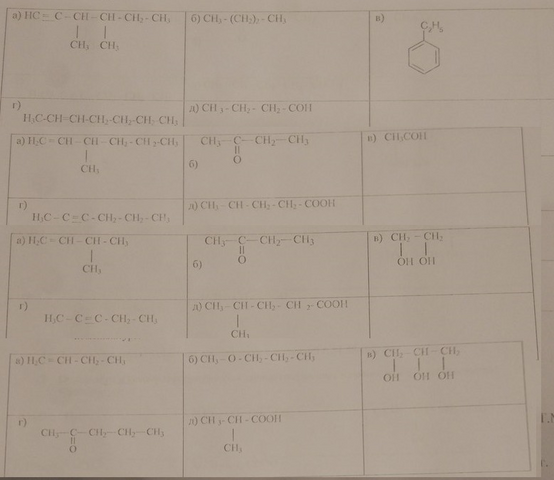 а) HC ≡ C – CH – CH - CH₂ - CH₃
CH₃ CH₃
б) CH₃ - (CH₂)₂ - CH₃
в)
C₂H₅
г)
H₃C-CH=CH-CH₂-CH₂-CH₂-CH₃
д) CH₃ - CH₂ - CH₂ -COH
а) H₂C = CH – CH – CH₂ -CH₂-CH₃
CH₃
CH₃—C—CH₂—CH₃
O
б)
в) CH₃COH
г)
H₃C – C ≡ C – CH₂ - CH₂ - CH₃
д) CH₃ – CH – CH₂ – CH₂ – COOH
а) H₂C = CH – CH - CH₃
CH₃
CH₃—C—CH₂—CH₃
O
б)
в) CH₂ – CH₂
OH OH
г)
H₃C – C ≡ C – CH₂ - CH₃
д) CH₃ – CH – CH₂ - CH₂ – COOH
CH₃
а) H₂C = CH - CH₂ - CH₃
б) CH₃ - O - CH₂ - CH₂ - CH₃
в) CH₂ – CH – CH₂
OH OH OH
г)
CH₃—C—CH₂—CH₂—CH₃
O
д) CH₃ - CH - COOH
CH₃